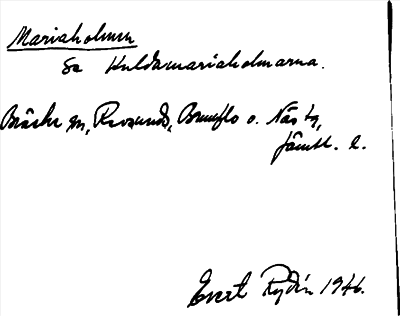 Mariaholmen
Se Kuldamariaholmarna.
Bräcke sn, Revsunds, Brunflo o. Näs tg,
Jämtl. l.
Evert Rydin 1946.